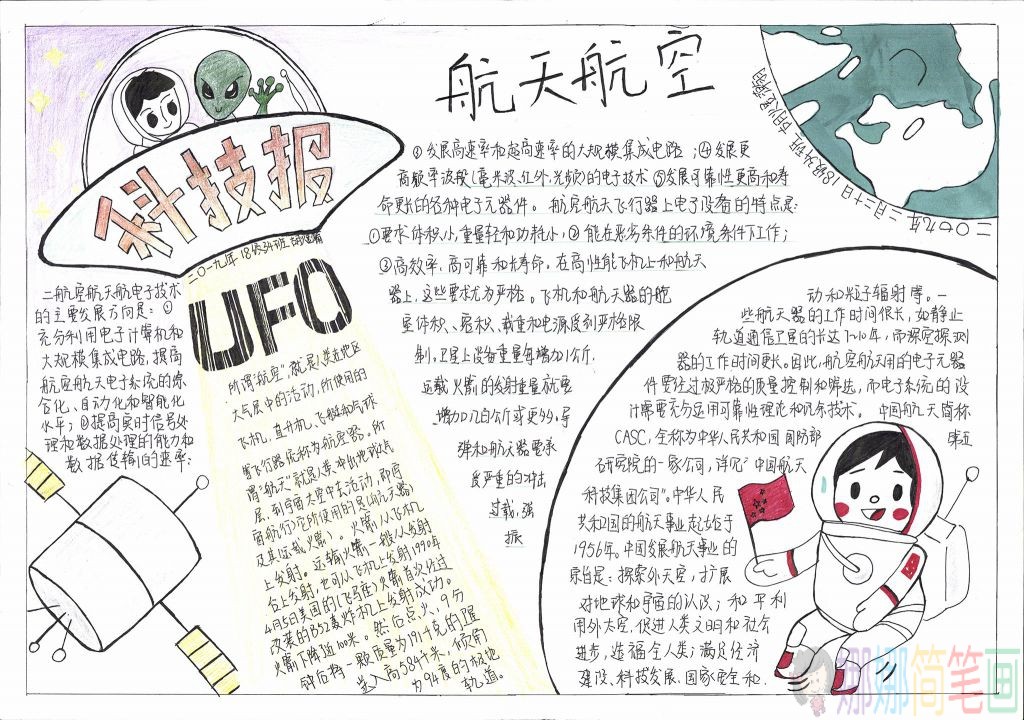 航天航空
科技报
二〇一九年18级34班
UFO
二航空航天航电子技术
的主要发展方向是：①
充分利用电子计算机和
大规模集成电路，提高
航空航天电子系统的综
合化、自动化和智能化
水平；②提高实时信号处
理和数据处理的能力和
数据传输的速率；
③发展高速率和超高速率的大规模集成电路；④发展更
高频率波段(毫米波、红外、光频)的电子技术⑤发展可靠性更高和寿
命更长的各种电子元器件。航空航天飞行器上电子设备的特点是：
①要求体积小,重量轻和功耗小；②能在恶劣条件的环境条件下工作；
③高效率、高可靠和长寿命。在高性能飞机上和航天
器上，这些要求尤为严格。飞机和航天器的舱
室体积、容积、载重和电源受到严格限
制，卫星上设备重量每增加1公斤，
运载火箭的发射重量就要
增加几百公斤或更多。导
弹和航天器要承
受严重的冲击
过载、强
振
动和粒子辐射等。一
些航天器的工作时间很长，如静止
轨道通信卫星的长达7~10年，而深空探测
器的工作时间更长。因此，航空航天用的电子元器
件要经过极严格的质量控制和筛选，而电子系统的设
计需要充分运用可靠性理论和冗余技术。中国航天简称
CASC，全称为中华人民共和国国防部
研究院的一家公司，详见"中国航天
科技集团公司"。中华人民
共和国的航天事业起始于
1956年。中国发展航天事业的
宗旨是：探索外太空，扩展
对地球和宇宙的认识；和平利
用外太空，促进人类文明和社会
进步，造福全人类；满足经济
建设、科技发展、国家安全和
所谓"航空"就是人类在地区
大气层中的活动，所使用的
飞机、直升机、飞艇和气球
等飞行器统称为航空器。所
谓"航天"就是人类冲出地球大气
层，到宇宙太空中去活动，即宇
宙航行，它所使用的是(航天器)
及其运载火箭）。火箭从飞机
上发射。运输火箭一般从发射
台上发射，也可从飞机上发射1990年
4月5日美国的(飞马座)火箭首次经过
改装的B52轰炸机上发射成功。
火箭下降近100米。然后点火、9分
钟后将一颗质量为191千克的卫星
送入高584千米、倾角
为94度的极地
轨道。
二〇一九年
二月二十日 18级34班
娜娜简笔画